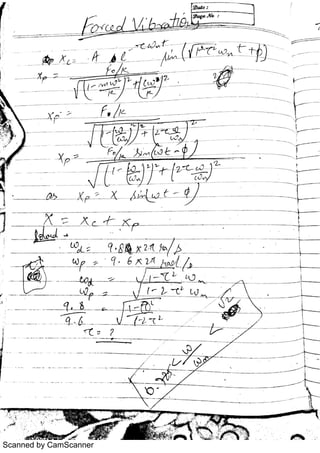 Date :
Page No :
Forced Vibrations
x_c = A e^{-ζω_n t} sin(√1-ζ²ω_n t + φ)
x_p = F_0/k / √[1 - mω²/k]² + [cω/k]²
x_p = F_0/k / √[1 - (ω/ω_n)²]² + [2ζω/ω_n]²
x_p = F_0/k sin(ωt - φ) / √[1 - (ω/ω_n)²]² + [2ζω/ω_n]²
as x_p = X sin(ωt - φ)
X = x_c + x_p
ω_d = 9.8 x 2π ra/s
ω_p = 9.6 x 2π rad/s
ω_d = √1-ζ² ω_n
ω_p = √1-2ζ² ω_n
9.8/9.6 = √1-ζ²/1-2ζ²
ζ = ?
< ω/ω_n < √2
Scanned by CamScanner